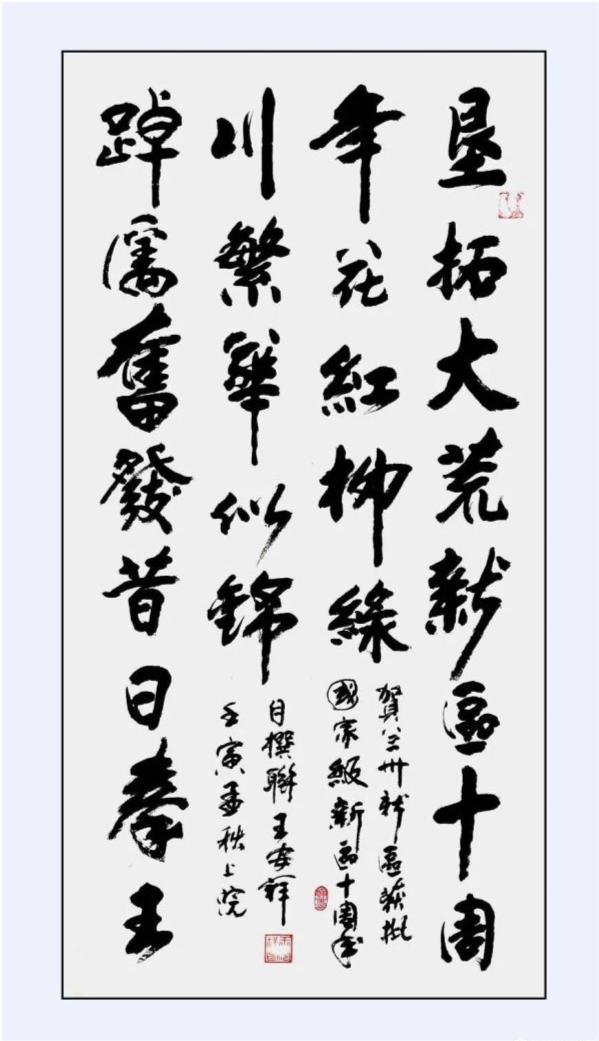 垦拓大荒新區十周
年花紅柳綠
賀兰州新區获批
國家級新區十周年
踔厲奮發昔日秦王
川繁華似錦
自撰聯王安祥
壬寅孟秋上院